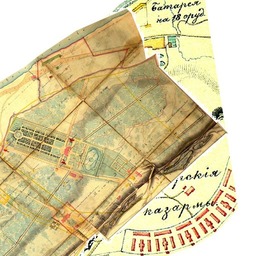 Батарея
на 18 оруд.
рскія
казармы